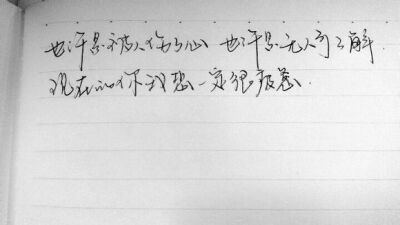 也许是被人伤了心 也许是无人可了解
现在的你我想一定很疲惫.